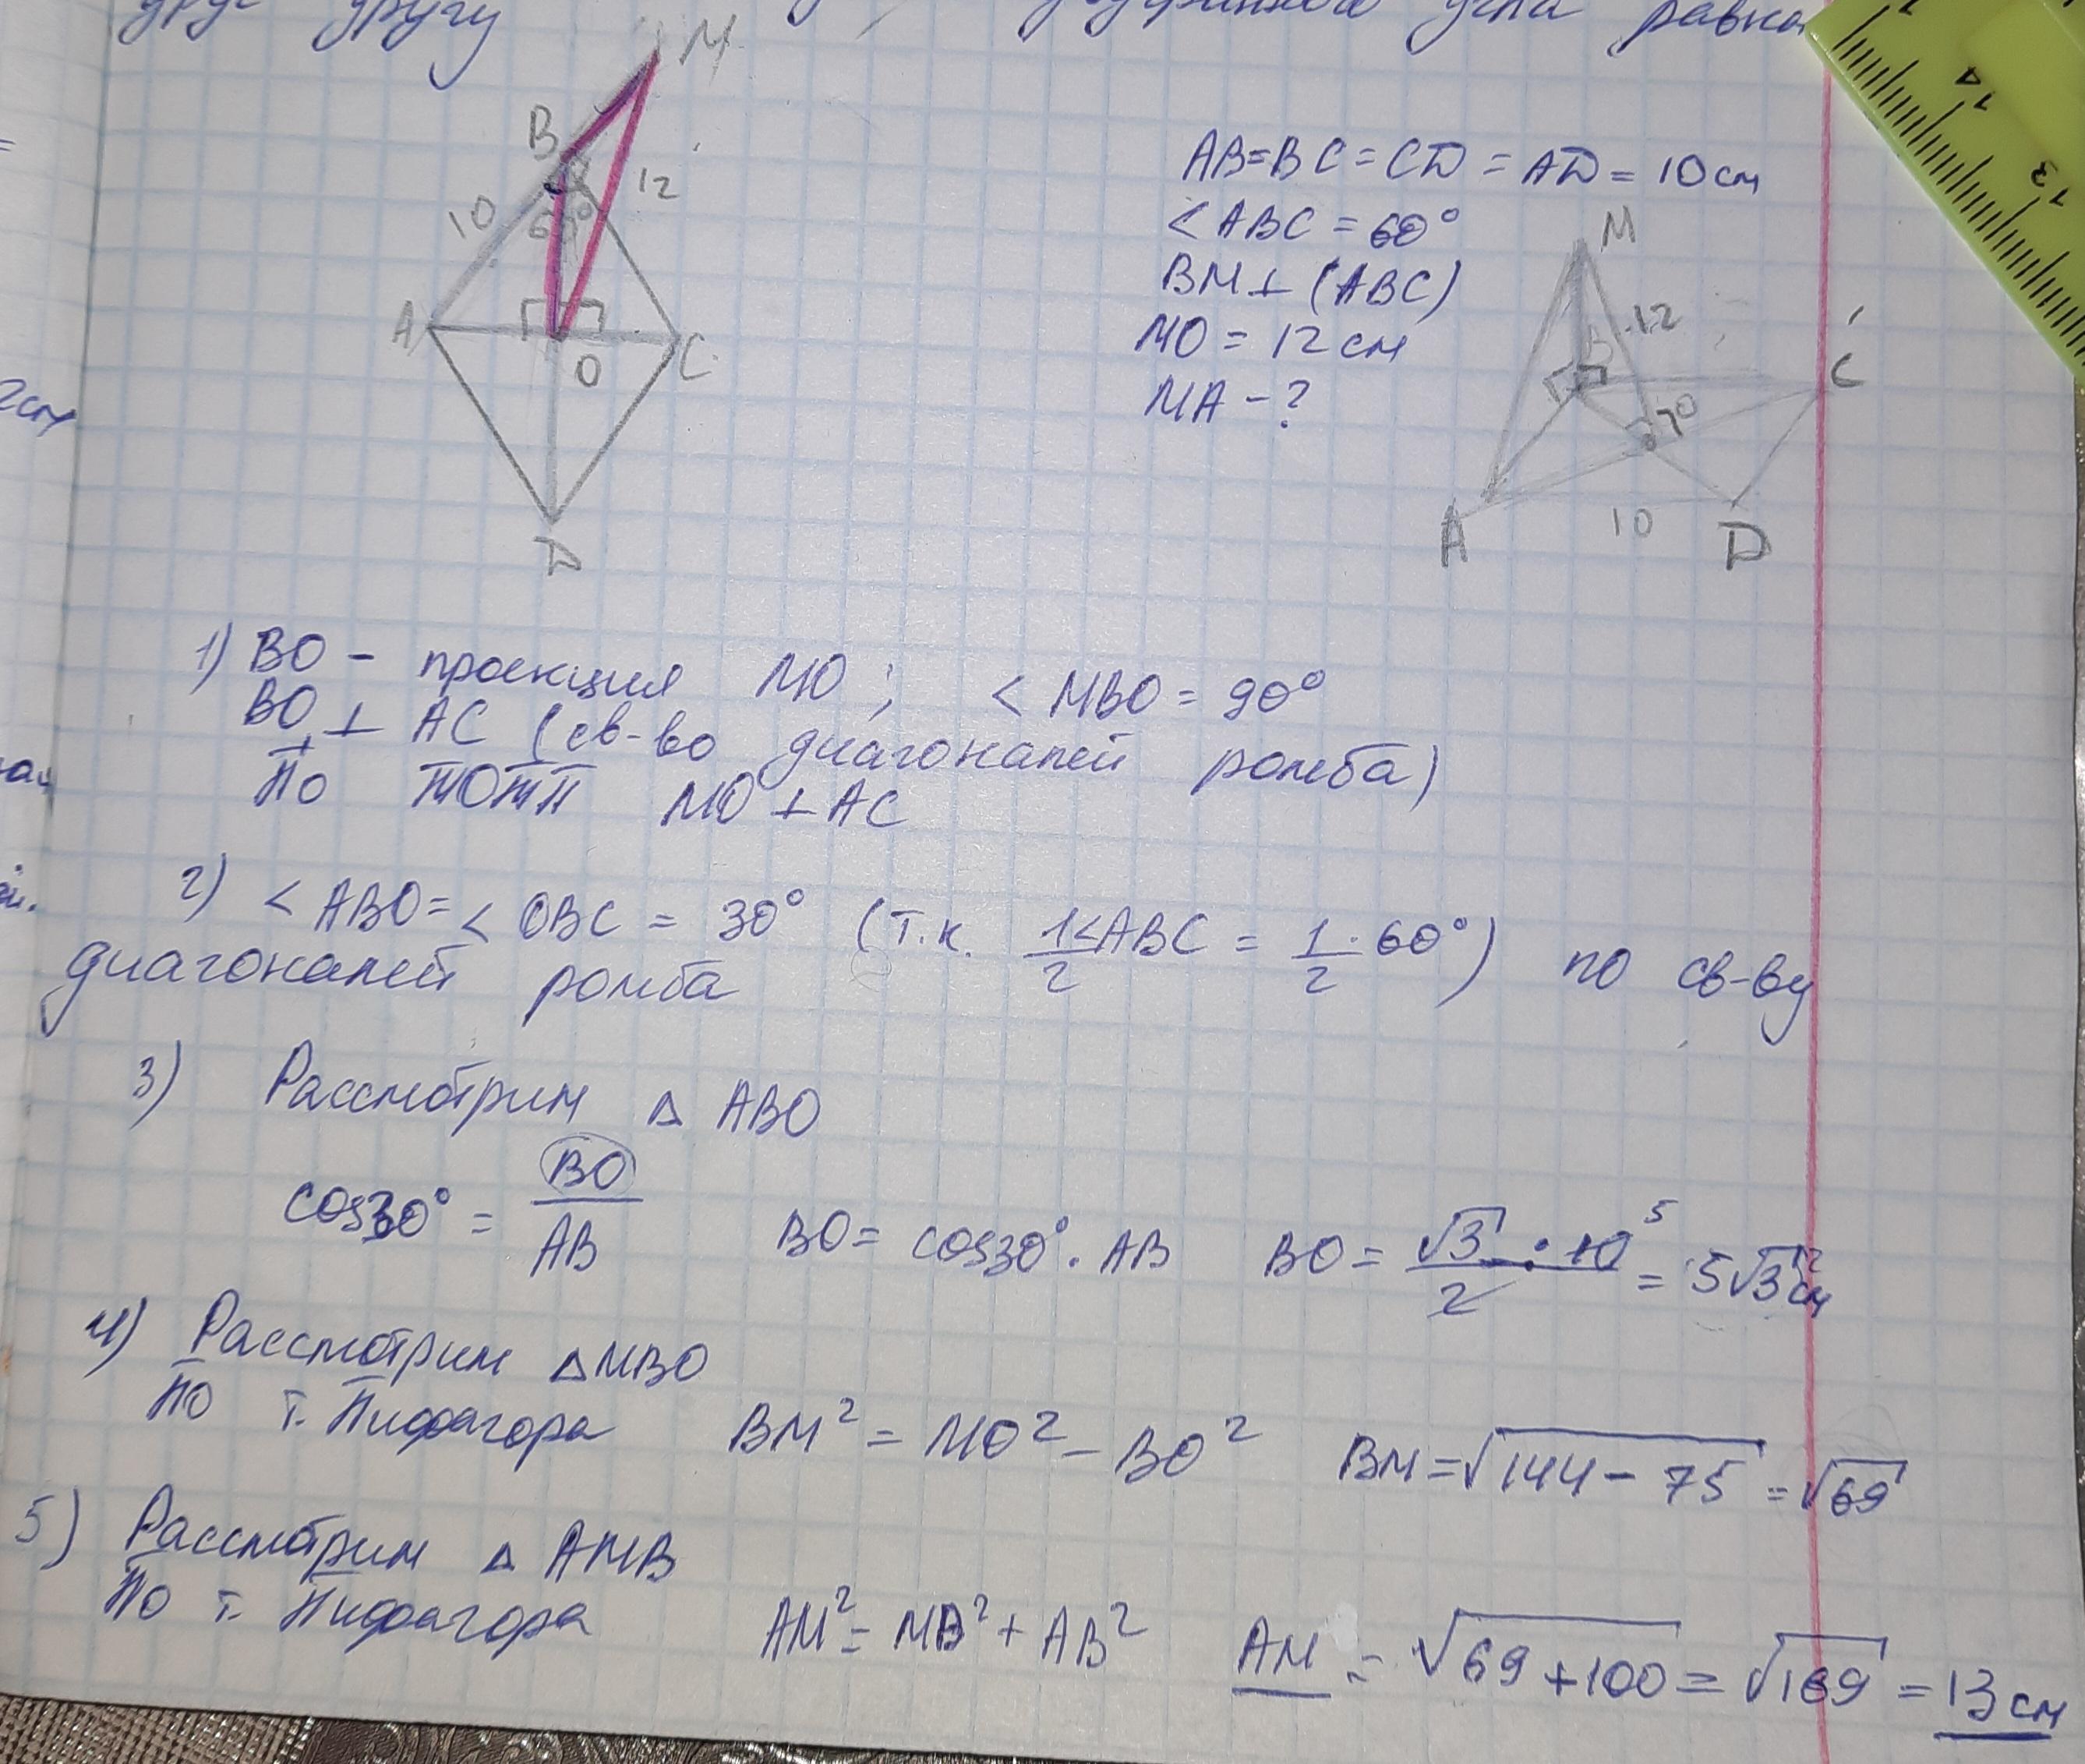 друг другу угла равна
M
B
12
10
60°
A
O
C
D
AB=BC=CD=AD=10см
<ABC=60°
BM⊥(ABC)
MO=12см
MA-?
M
B
12
C
O
A
10
D
1) BO - проекция MO; <MBO=90°
BO⊥AC (св-во диагоналей ромба)
По ТОТП MO⊥AC
2) <ABO=<OBC=30° (т.к. 1<ABC/2=1/2·60°) по св-ву
диагоналей ромба
3) Рассмотрим △ABO
cos30°=BO/AB BO=cos30°·AB BO=√3·10/2 5=5√3см
4) Рассмотрим △MBO
по т. Пифагора BM²=MO²-BO² BM=√144-75=√69
5) Рассмотрим △AMB
По т. Пифагора AM²=MB²+AB² AM=√69+100=√169=13см
2см
4
3